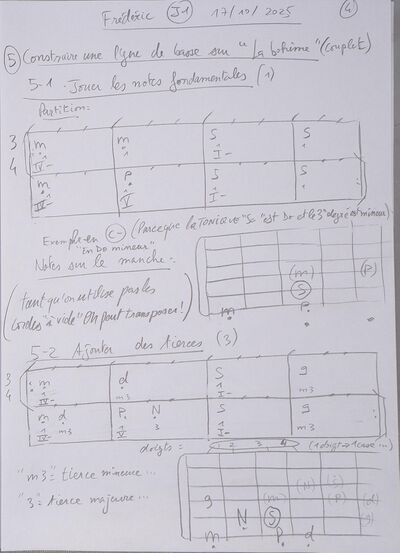 Frédéric J-1 17/10/2025 4
5 Construire une ligne de basse sur "La bohème" (couplet)
5-1. Jouer les notes fondamentales (1)
Partition:
3 m m S S
4 IV- 1 I- 1
m P S S
IV- V I- 1
Exemple en C- (Parceque la TONIQUE "S" est Do et le 3° degré est mineur).
"en Do mineur"
Notes sur le manche:
(m) (P)
S
m P
(tant qu'on utilise pas les
cordes "à vide" on peut transposer!)
5-2 Ajouter des tierces (3)
3 m d S g
4 1 m3 1 m3
IV- I-
m d P N S g
1 m3 1 3 1 m3
IV- V I-
doigts = 2 3 4 (1 doigt → 1 case...)
"m3" = tierce mineure...
"3" = tierce majeure...
(N)
g (m) (P) (d)
N S (g)
m P d